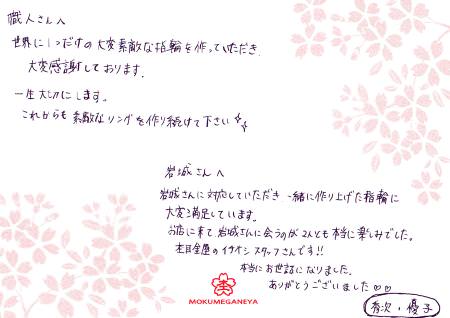 職人さんへ
世界に1つだけの大変素敵な指輪を作っていただき
大変感謝しております。
一生大切にします。
これからも素敵なリングを作り続けて下さい☆☆
岩城さんへ
岩城さんに対応していただき、一緒に作り上げた指輪に
大変満足しています。
お店に来て岩城さんに会うのが2人とも本当に楽しみでした。
杢目金屋のイチオシスタッフさんです!!
本当にお世話になりました。
ありがとうございました♡♡
MOKUMEGANEYA
・優子